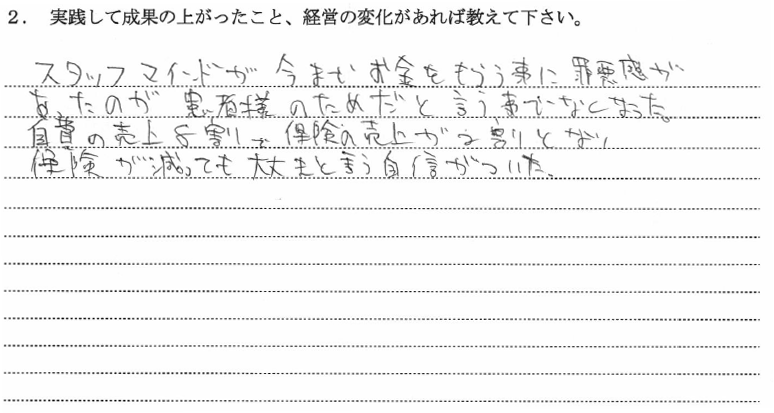 2. 実践して成果の上がったこと、経営の変化があれば教えて下さい。
スタッフマインドが今までお金をもらう事に罪悪感が
あったのが患者様のためだと言う事でなくなった。
自費の売上8割で保険の売上が2割となり
保険が減っても大丈夫と言う自信がついた。